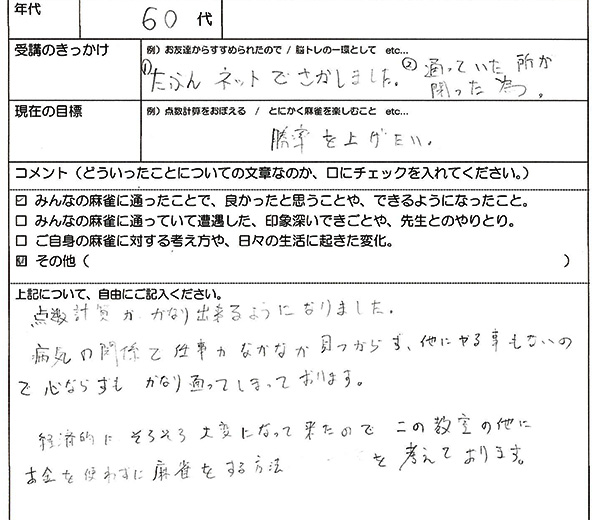 年代
60代
受講のきっかけ
例）お友達からすすめられたので / 脳トレの一環として etc...
①たぶん ネットでさがしました。②通っていた所が
閉った為。
現在の目標
例）点数計算をおぼえる / とにかく麻雀を楽しむこと etc...
勝率を上げたい。
コメント（どういったことについての文章なのか、口にチェックを入れてください。）
☑ みんなの麻雀に通ったことで、良かったと思うことや、できるようになったこと。
□ みんなの麻雀に通っていて遭遇した、印象深いできごとや、先生とのやりとり。
□ ご自身の麻雀に対する考え方や、日々の生活に起きた変化。
☑ その他（　　　）
上記について、自由にご記入ください。
点数計算が かなり出来るようになりました。
病気の関係で仕事がなかなか見つからず、他にやる事もないの
で心ならずも かなり通ってしまっております。
経済的に そろそろ大変になって来たので この教室の他に
お金を使わずに麻雀をする方法 を考えております。